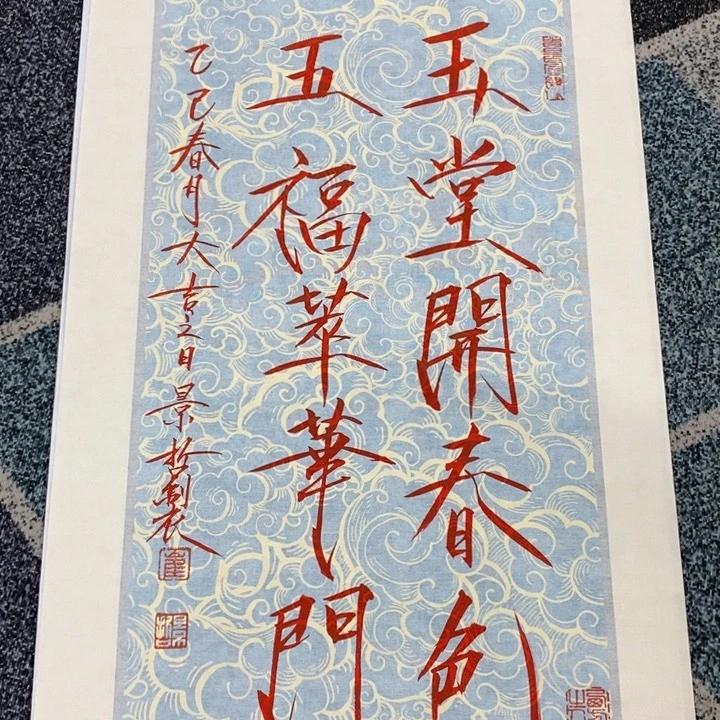 玉堂開春
五福萃華門
乙巳春月大吉之日景哲製